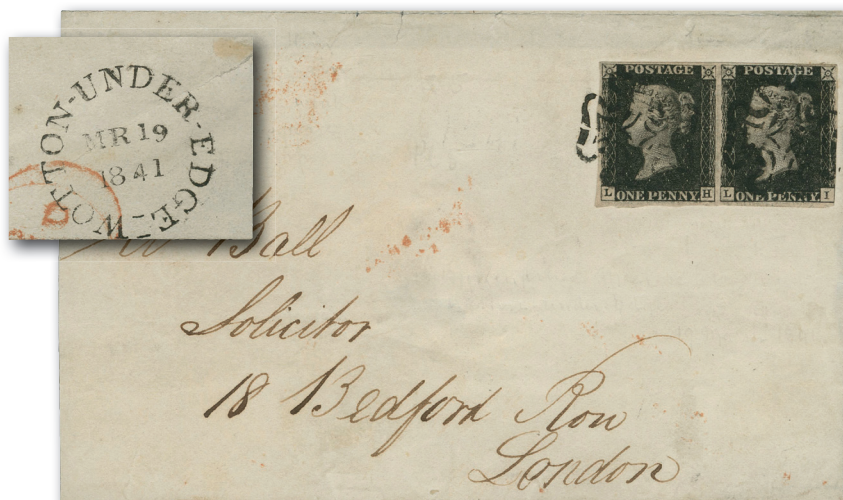 WOTTON-UNDER-EDGE
MR 19
1841
POSTAGE
ONE PENNY
L H
POSTAGE
ONE PENNY
L I
Ball
Solicitor
18 Bedford Row
London